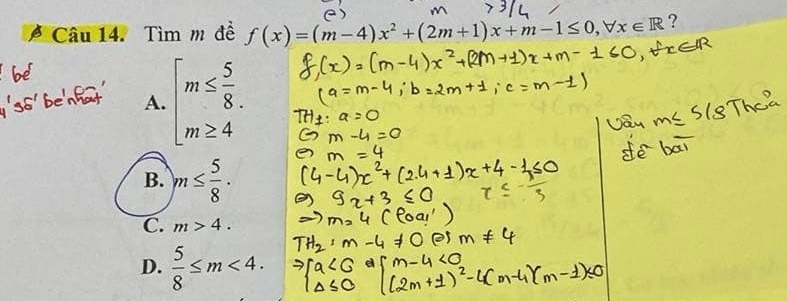 m > 3/4
Câu 14. Tìm m để f(x)=(m−4)x²+(2m+1)x+m−1≤0,∀x∈ℝ?
bé
số bé nhất
A. [m≤5/8. m≥4
B. m≤5/8.
C. m>4.
D. 5/8≤m<4.
f(x)=(m-4)x²+(2m+1)x+m-1≤0, ∀x∈R
(a=m-4; b=2m+1; c=m-1)
TH1: a=0
⇔ m-4=0
⇔ m=4
(4-4)x²+(2.4+1)x+4-1≤0
⇔ 9x+3≤0
⇒ m=4 (loại)
TH2: m-4≠0 ⇔ m≠4
⇒ {a<0 Δ≤0 ⇔ {m-4<0 (2m+1)²-4(m-4)(m-1)≤0
Vậy m≤5/8 Thỏa
đề bài